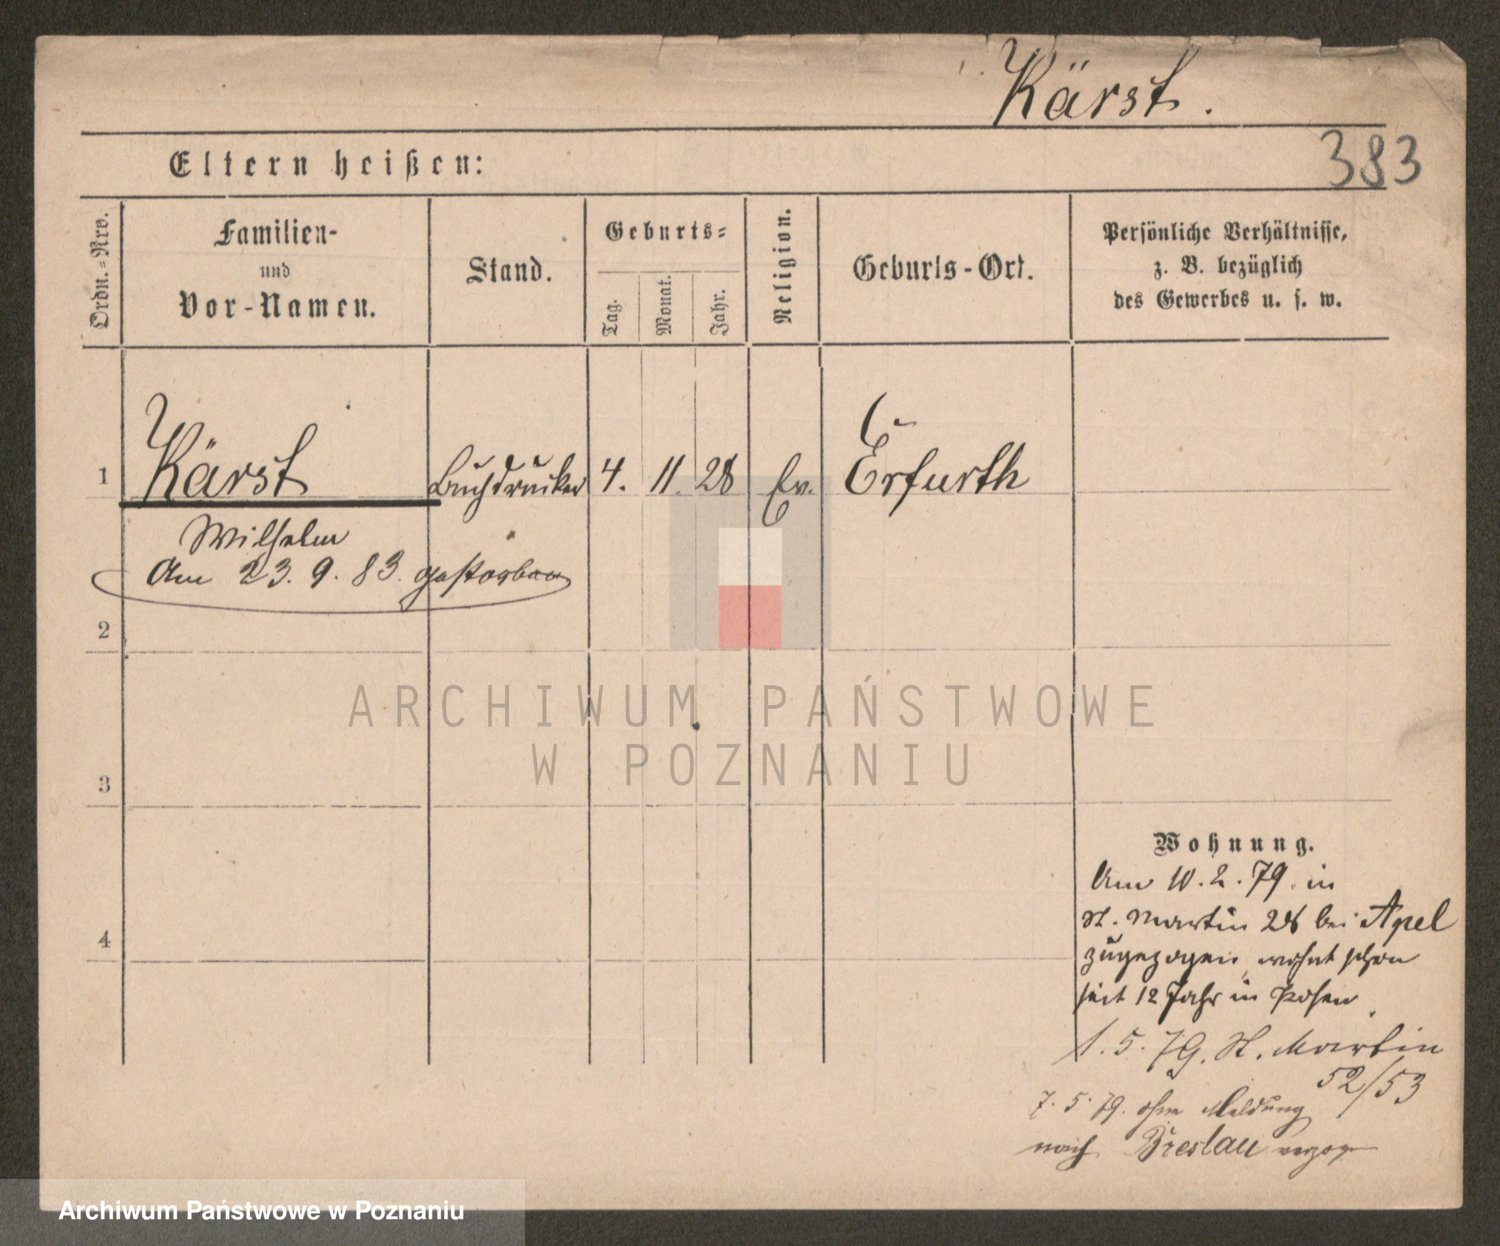 Kärst.
383
Eltern heißen:
Ordn.=Nro.
Familien-
und
Vor-Namen.
Stand.
Geburts=
Tag.
Monat.
Jahr.
Religion.
Geburts-Ort.
Persönliche Verhältnisse,
z. B. bezüglich
des Gewerbes u. s. w.
1 Kärst Buchdrucker 4. 11. 28 Ev. Erfurth
Wilhelm
Am 23. 9. 83. gestorben
2
ARCHIWUM PAŃSTWOWE
W POZNANIU
3
Wohnung.
Am 10. 2. 79. in
St. Martin 28 bei Apel
4
zugezogen, wohnt schon
seit 12 Jahr in Posen.
1. 5. 79. St. Martin
52/53
7. 5. 79. ohne Meldung
nach Breslau verzogen
Archiwum Państwowe w Poznaniu